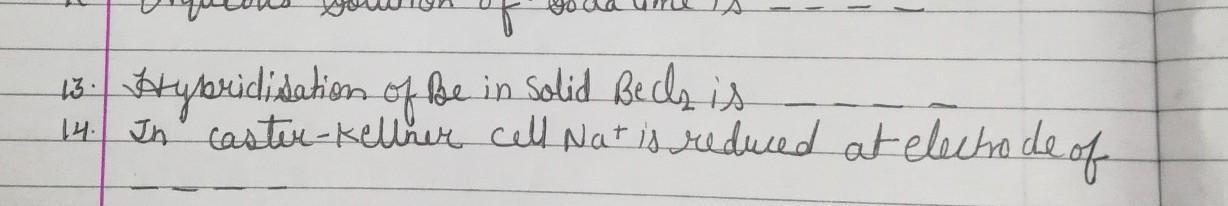 solution of soda lime is _ _ _ _
13. Hybridisation of Be in solid BeCl2 is _ _ _ _
14. In caster-Kellner cell Na+ is reduced at electrode of
_ _ _ _